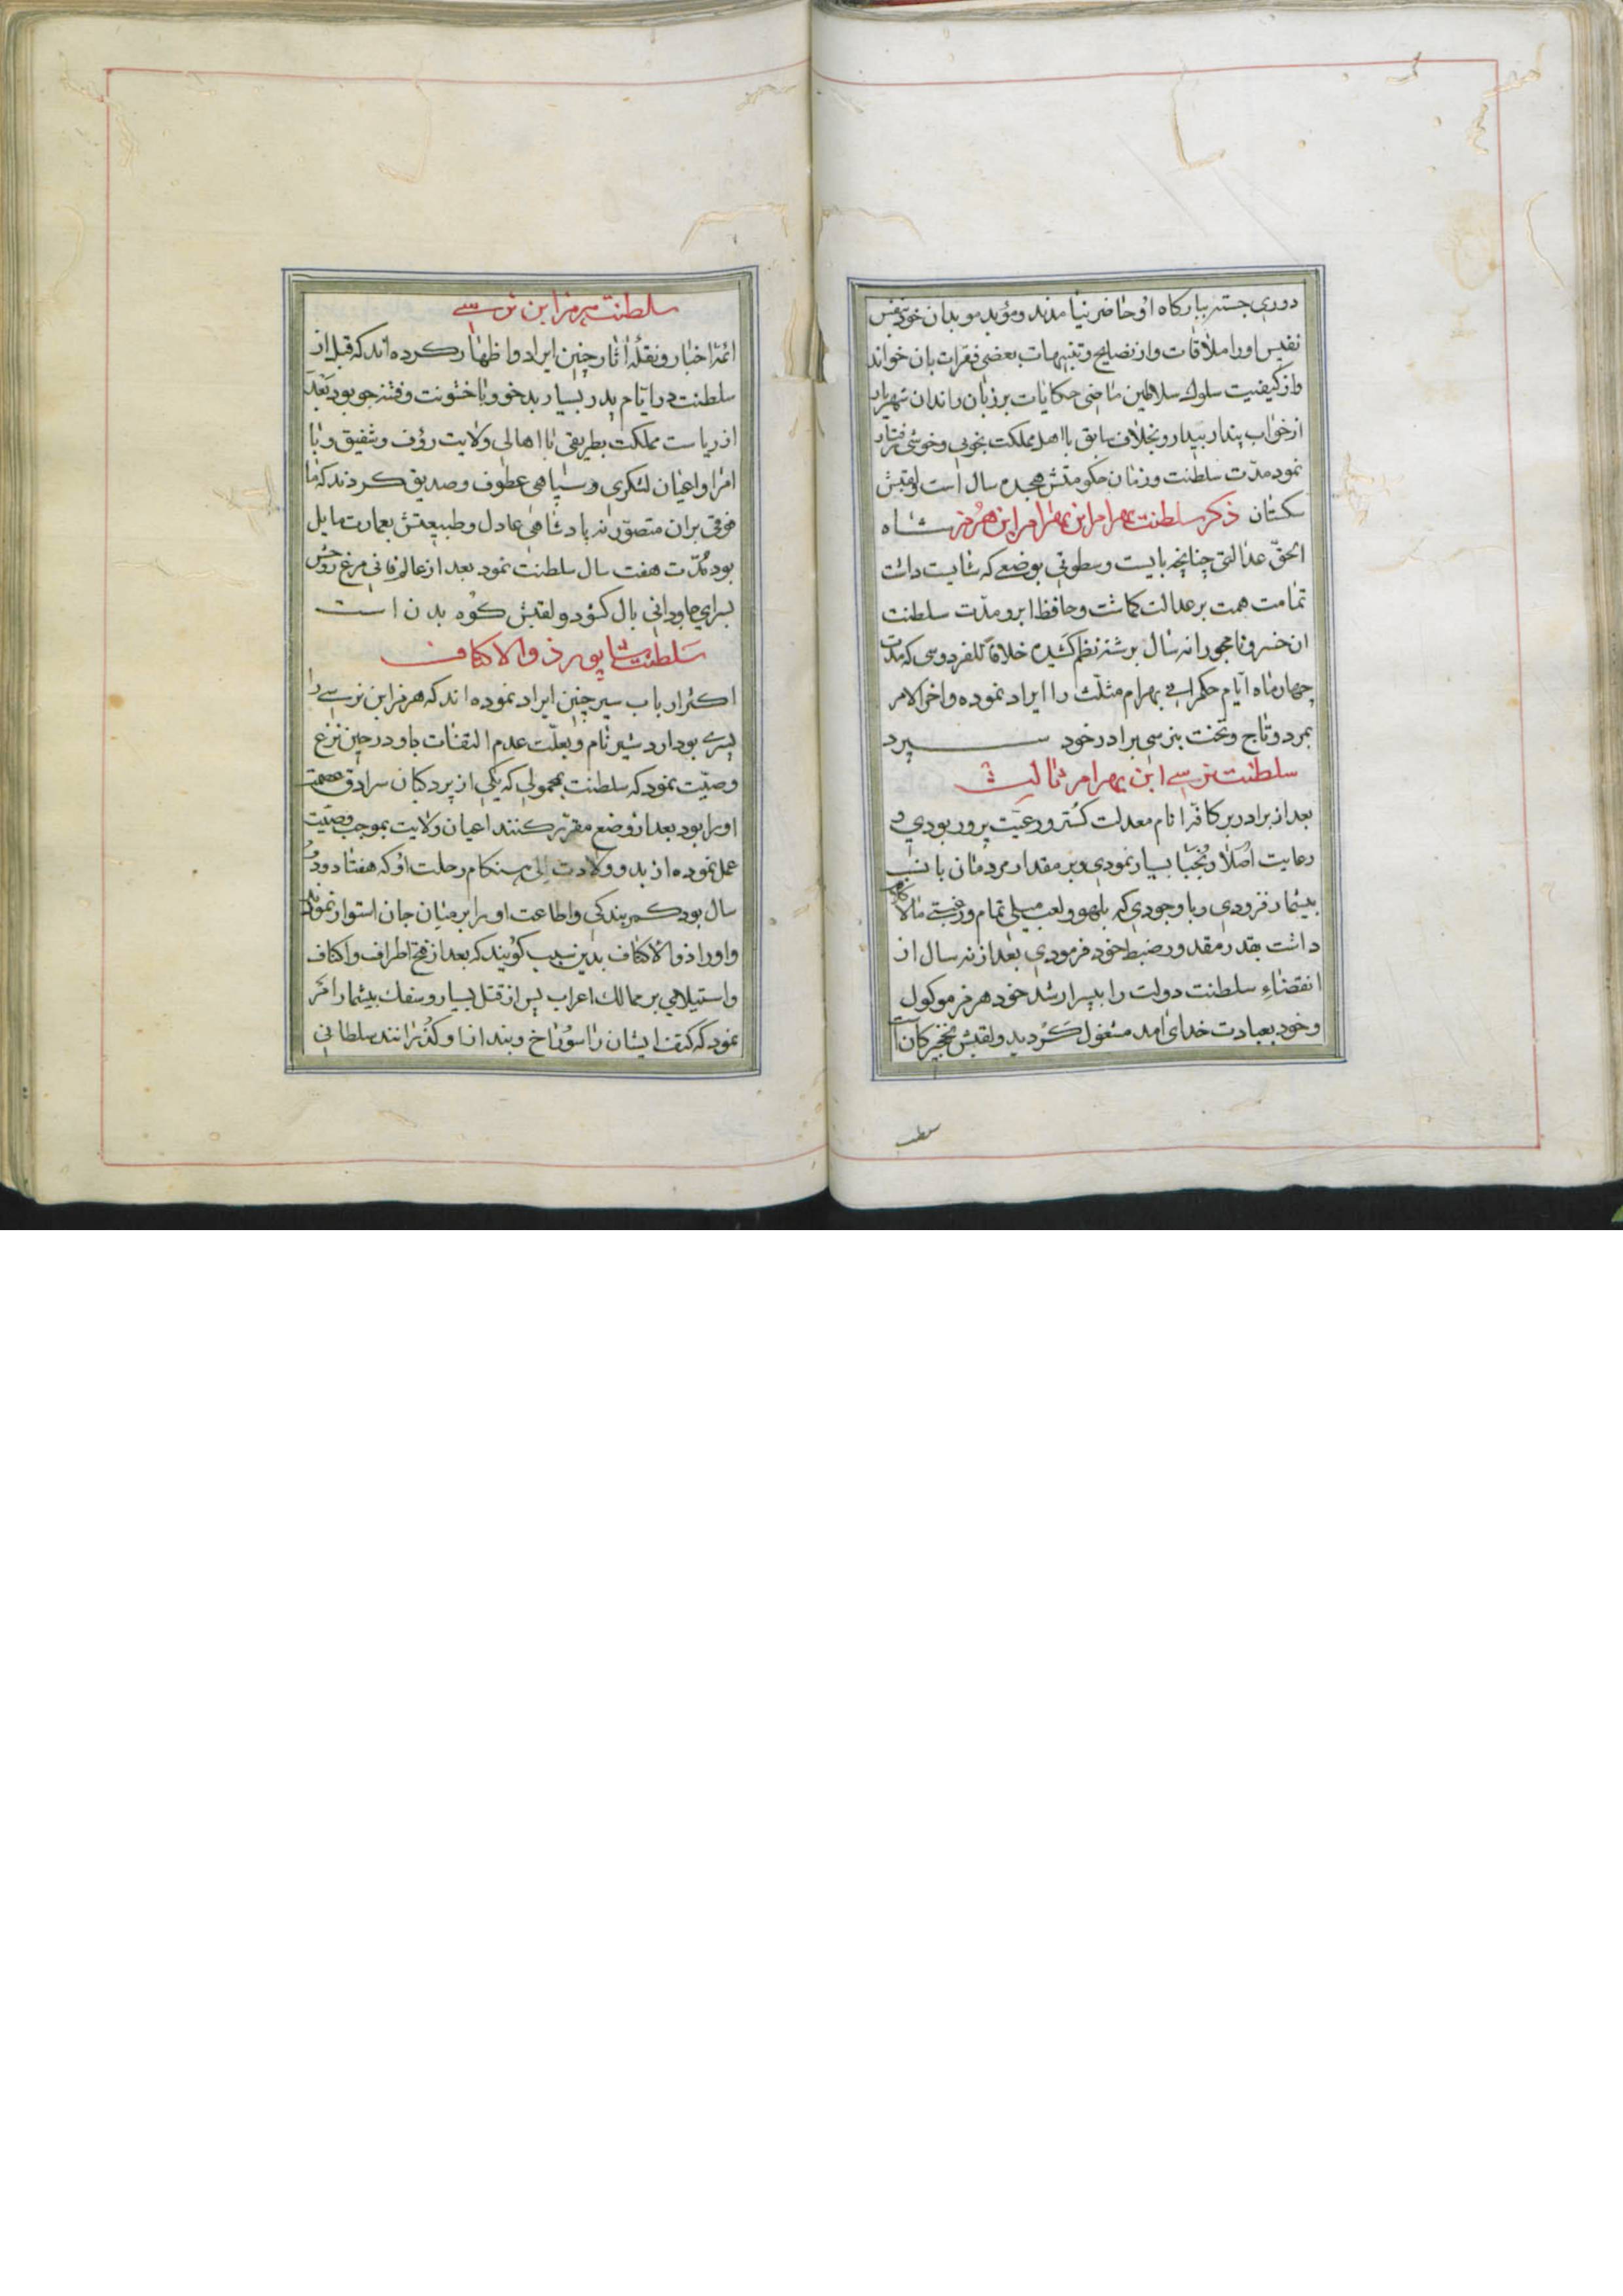 دوری جسته ببارکاه او حاضر نیامدند و مؤبد موبدان خود بنفس
نفیس او را ملاقات و از نصایح و تنبیهات بعضی فقرات بان خواند
و از کیفیت سلوک سلاطین ماضی حکایات بر زبان راندان شهریار
از خواب پندار بیدار و بخلاف سابق با اهل مملکت بخوبی و خوشی رفتار
نمود مدّت سلطنت و زمان حکومتش هجده سال است و لقبش
سکتان ذکر سلطنت بهرام ابن بهرام ابن هرمز شاه
الحقّ عدالتی چنانچه بایست و سطوتی بوضعی که شایست داشت
تمامت همت بر عدالت کماشت و حافظ ابرو مدّت سلطنت
ان خسرو نامجو را نه سال بر شته نظم کشیده خلافاً للفردوسی که مدّت
چهار ماه ایّام حکمرانی بهرام مثلّث را ایراد نموده و اخر الامر
بمرد و تاج و تخت بنرسی برادر خود سپرد
سلطنت نرسی ابن بهرام ثالث
بعد از برادر بر کافّه انام معدلت کستر و رعیّت پرور بودی و
رعایت اصلا و نجبا بسیار نمودی و بر مقدار مردمان با نسب
بیشمار فزودی و با وجودی که بلهو و لعب میلی تمام و رغبتی مالا کلام
داشت بقدر مقدور ضبط خود فرمودی بعد از نه سال از
انقضاء سلطنت دولت را بپسر ارشد خود هرمز موکول
و خود بعبادت خدای امد مشغول کردید و لقبش نخجیرکان است
سلطنت
سلطنت هرمز ابن نرسی
ائمّه اخبار و نقله اثار چنین ایراد و اظهار کرده اند که قبل از
سلطنت در ایّام پدر بسیار بدخو و با خشونت و فتنه جو بود بعد
از ریاست مملکت بطریقی با اهالی ولایت رؤف و شفیق و با
امرا و اعیان لشکری و سپاهی عطوف و صدیق کردند که ما
فوقی بران متصوّر نه پادشاهی عادل و طبیعتش بعمارت مایل
بود مُدّت هفت سال سلطنت نمود بعد از عالم فانی مرغ روحش
بسرای جاودانی بال کشود و لقبش کوه بدن است
سلطنت شاپور ذو الاکتاف
اکثر ارباب سیر چنین ایراد نموده اند که هرمز ابن نرسی را
پسری بود اردشیر نام و بعلّت عدم التفات باو در حین نزع
وصیّت نمود که سلطنت بمحمولی که یکی از پردکیان سرادق عصمت
او را بود بعد از وضع مقرّر کنند اعیان ولایت بموجب وصیّت
عمل نموده از بدو ولادت الی هنکام رحلت او که هفتاد و دو
سال بود کمر بندکی و اطاعت او را بر میان جان استوار نمودند
و او را ذو الاکتاف بدین سبب کویند که بعد از فتح اطراف و اکناف
و استیلای بر ممالک اعراب پس از قتل بسیار و سفک بیشمار امر
نمود که کتف ایشان را سوراخ و بند از او کذرانند سلطانی